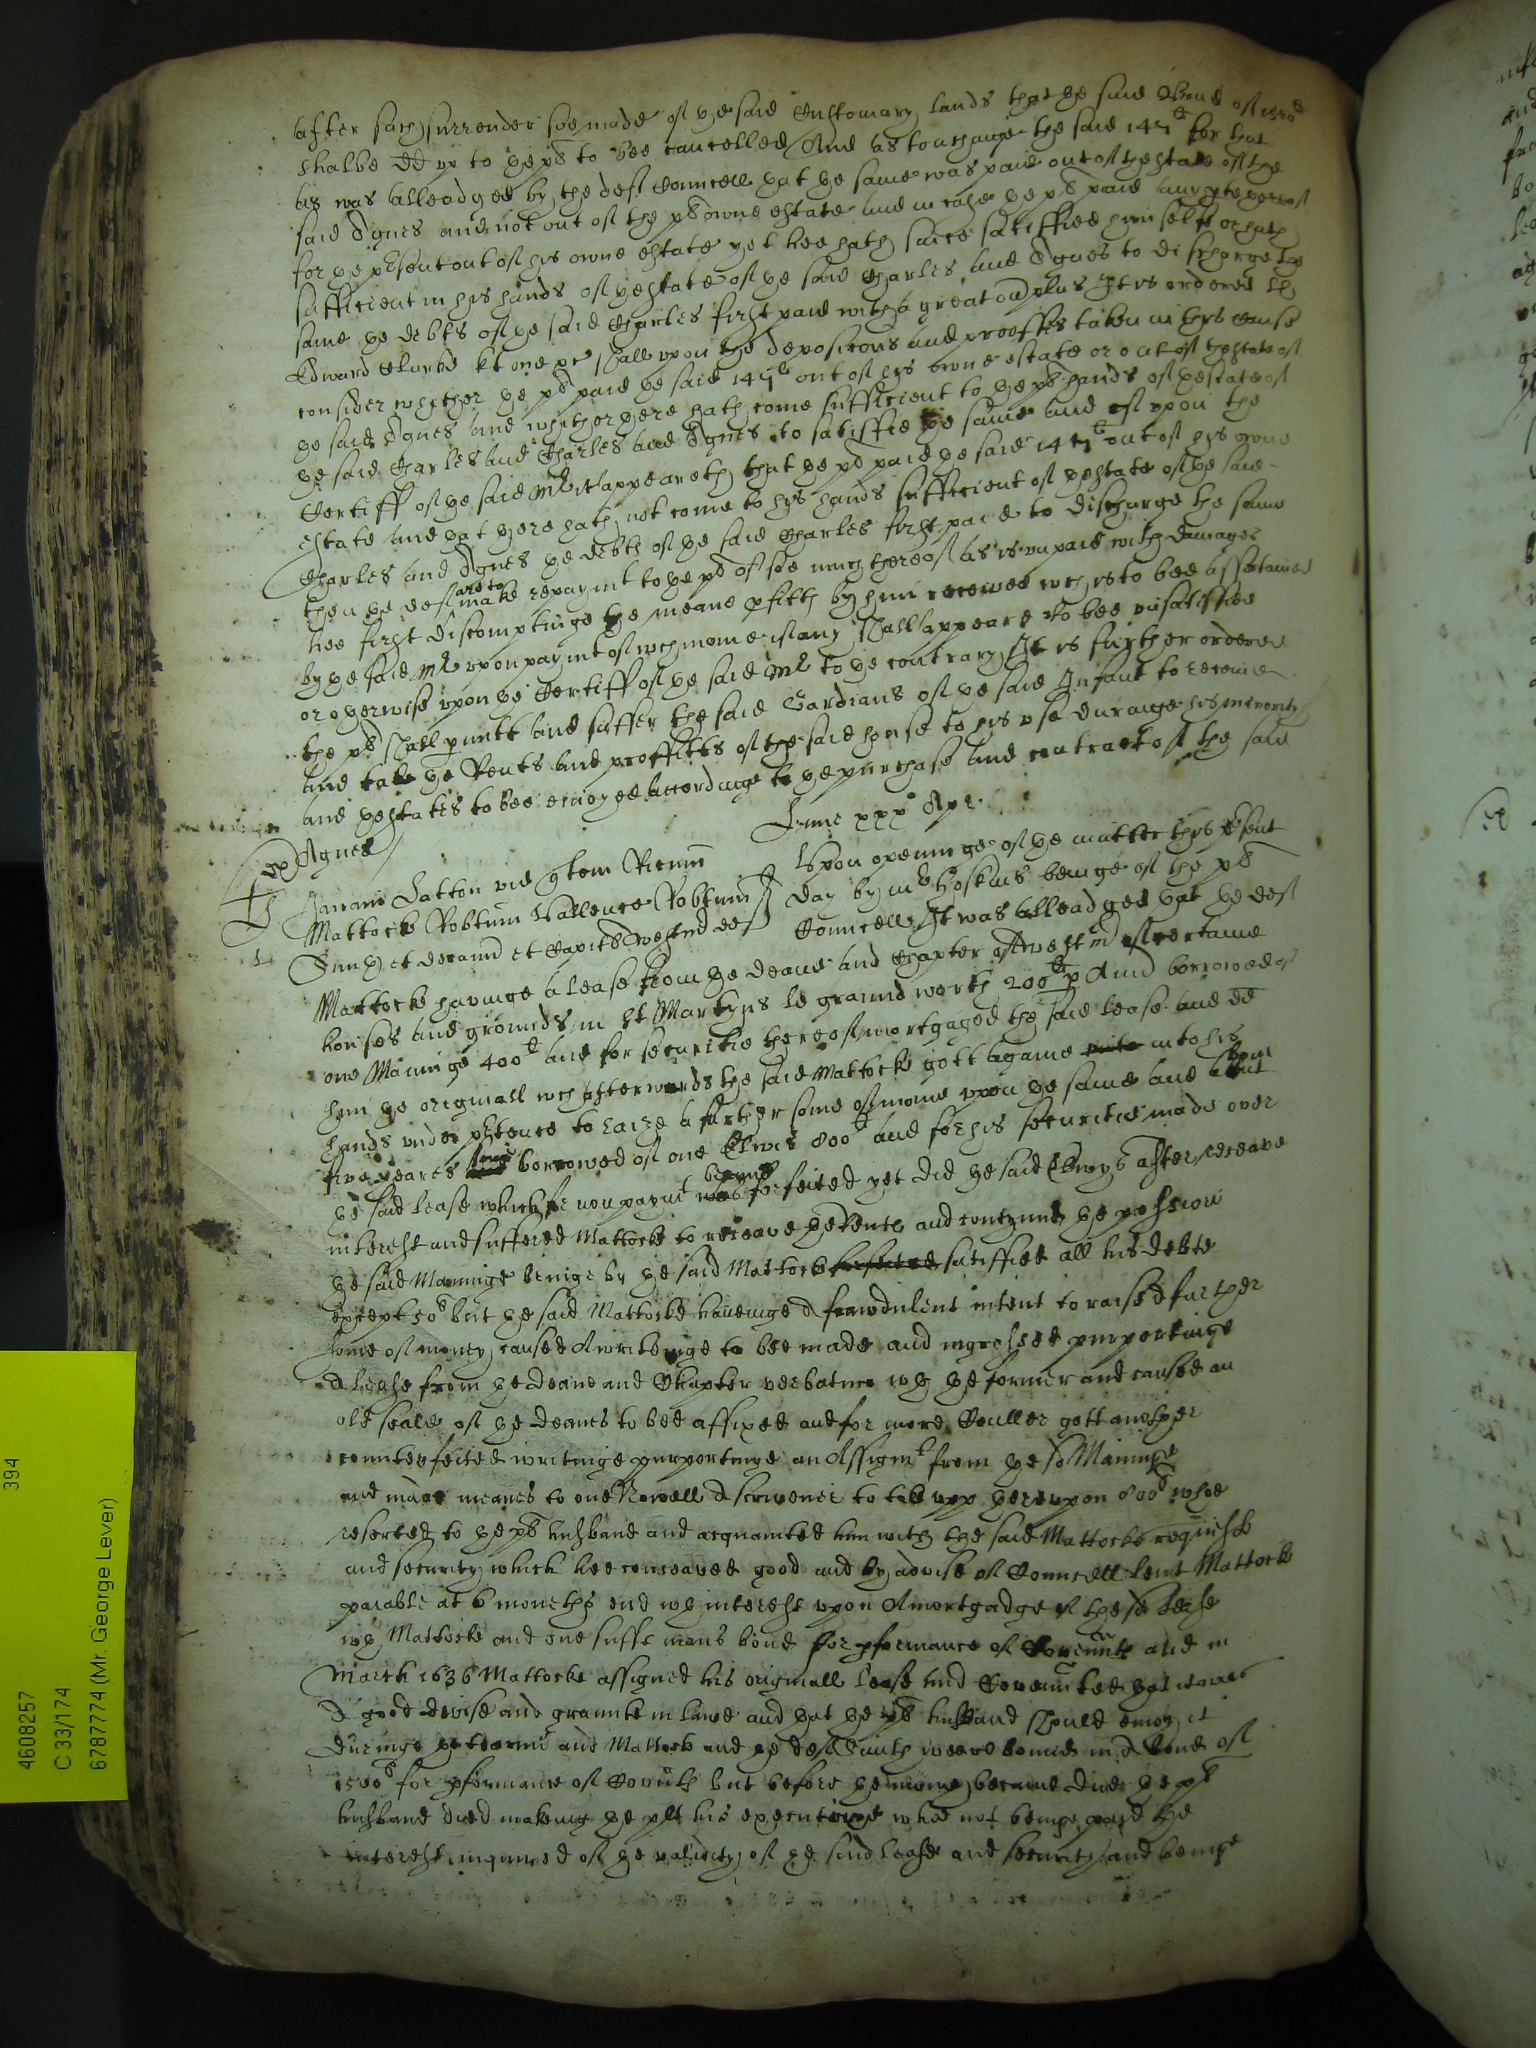 after such surrender soe made of ye said Customary lands that ye said Bond of
shalbe dd up to ye pl to bee cancelled And as touching the said 147li for that
as was alleadged by the deft Councell yat ye same was paid out of the estate of the
said Agnes and not out of the pl owne estate and in case ye pl paid any
for ye present out of his owne estate yet hee hath since satisfied himselfe or hath
sufficient in his hands of ye estate of ye said Charles and Agnes to discharge the
same ye debts of ye said Charles first paid with a great It is ordered
Edward Clarke kt one shall upon the deposicons and prooffes taken in this cause
consider whether ye pl paid ye said 147li out of his owne estate or out of the estate of
ye said Agnes and whither there hath come sufficient to ye pl hands of ye estate of
ye said Charles and Charles and Agnes to satisfie ye same and if upon the
Certiff of ye said Mr it appeareth that ye pl paid ye said 147li out of his owne
estate and yat there hath not come to his hands sufficient of ye estate of ye said
Charles and Agnes ye debts of ye said Charles first paid to discharge the same
then ye deft are to make repaymt to ye pl of soe much thereof as is unpaid with damages
hee first discomptinge ye meane pfitts by him receaved wch is to bee assertained
by ye said Mr upon paymt of wch monie if any shall appeare to bee unsatisfied
or otherwise upon ye Certiff of ye said Mr to ye contrary It is further ordered
the pl shall pmitt and suffer the said Gardians of ye said Infant to receive
and take ye Rents and proffitts of the said house to his use duringe his minority
and ye estates to bee enioyed accordinge to ye purchase and contract of the said
Agnes
Lune xxx Apr
Vpon openinge of ye matter this psent
Mattock Robtum Robtum day by mr Hoskins beinge of the pl
et decanu et def Councell It was alleadged yat ye def
Mattocke havinge a lease from ye deane and Chapter of Westmr of certaine
houses and grounds in St Martyns le graund worth 200li p Ann borrowed of
one Maninge 400li and for securitie thereof mortgaged the said lease and dd
him ye originall wch afterwards the said Mattocke gott againe into his
hands under ptence to raise a further some of monie upon ye same and about
five yeares since borrowed of one 800li and for his securitie made over
ye said lease which for non paymt became forfeited yet did ye said after receave
interest and suffered Mattocke to receave ye rents and contynue ye possion
ye said Maninge beinge by ye said Mattocke satisfied all his debte
except 50li but ye said Mattocke haveinge A frawdulent intent to raise A further
some of money caused A writeinge to bee made and ingrossed purportinge
A lease from ye deane and Chapter verbatim wth ye former and caused an
old seale of ye deanes to bee affixed and for more Couller gott another
counterfeited writinge purportinge an Assignmt from ye sd Maninge
and made meanes to one Nowell A scrivener to take upp thereupon 800li whoe
resorted to ye pl husband and acquainted him with the said Mattocks request
and security which hee conceaved good and by advise of Councell lent Mattock
paiable at 6 moneths end wth interest upon A mortgadge of these lease
wth Mattocke and one suffic mans bond for pformance of Covennts and in
March 1636 Mattocke assigned his originall lease and Covennted yat it was
A good devise and graunte in lawe and yat ye pl husband should enioy it
duringe ye terme and Mattock and ye def Smith weare bound in A bond of
1500li for pformance of Covnts but before ye money became due ye pl
husband died makeing ye plt his executrixe who not beinge paid the
interest inquired of ye validity of ye said lease and security and beinge
4608257 394
C 33/174
6787774 (Mr. George Lever)